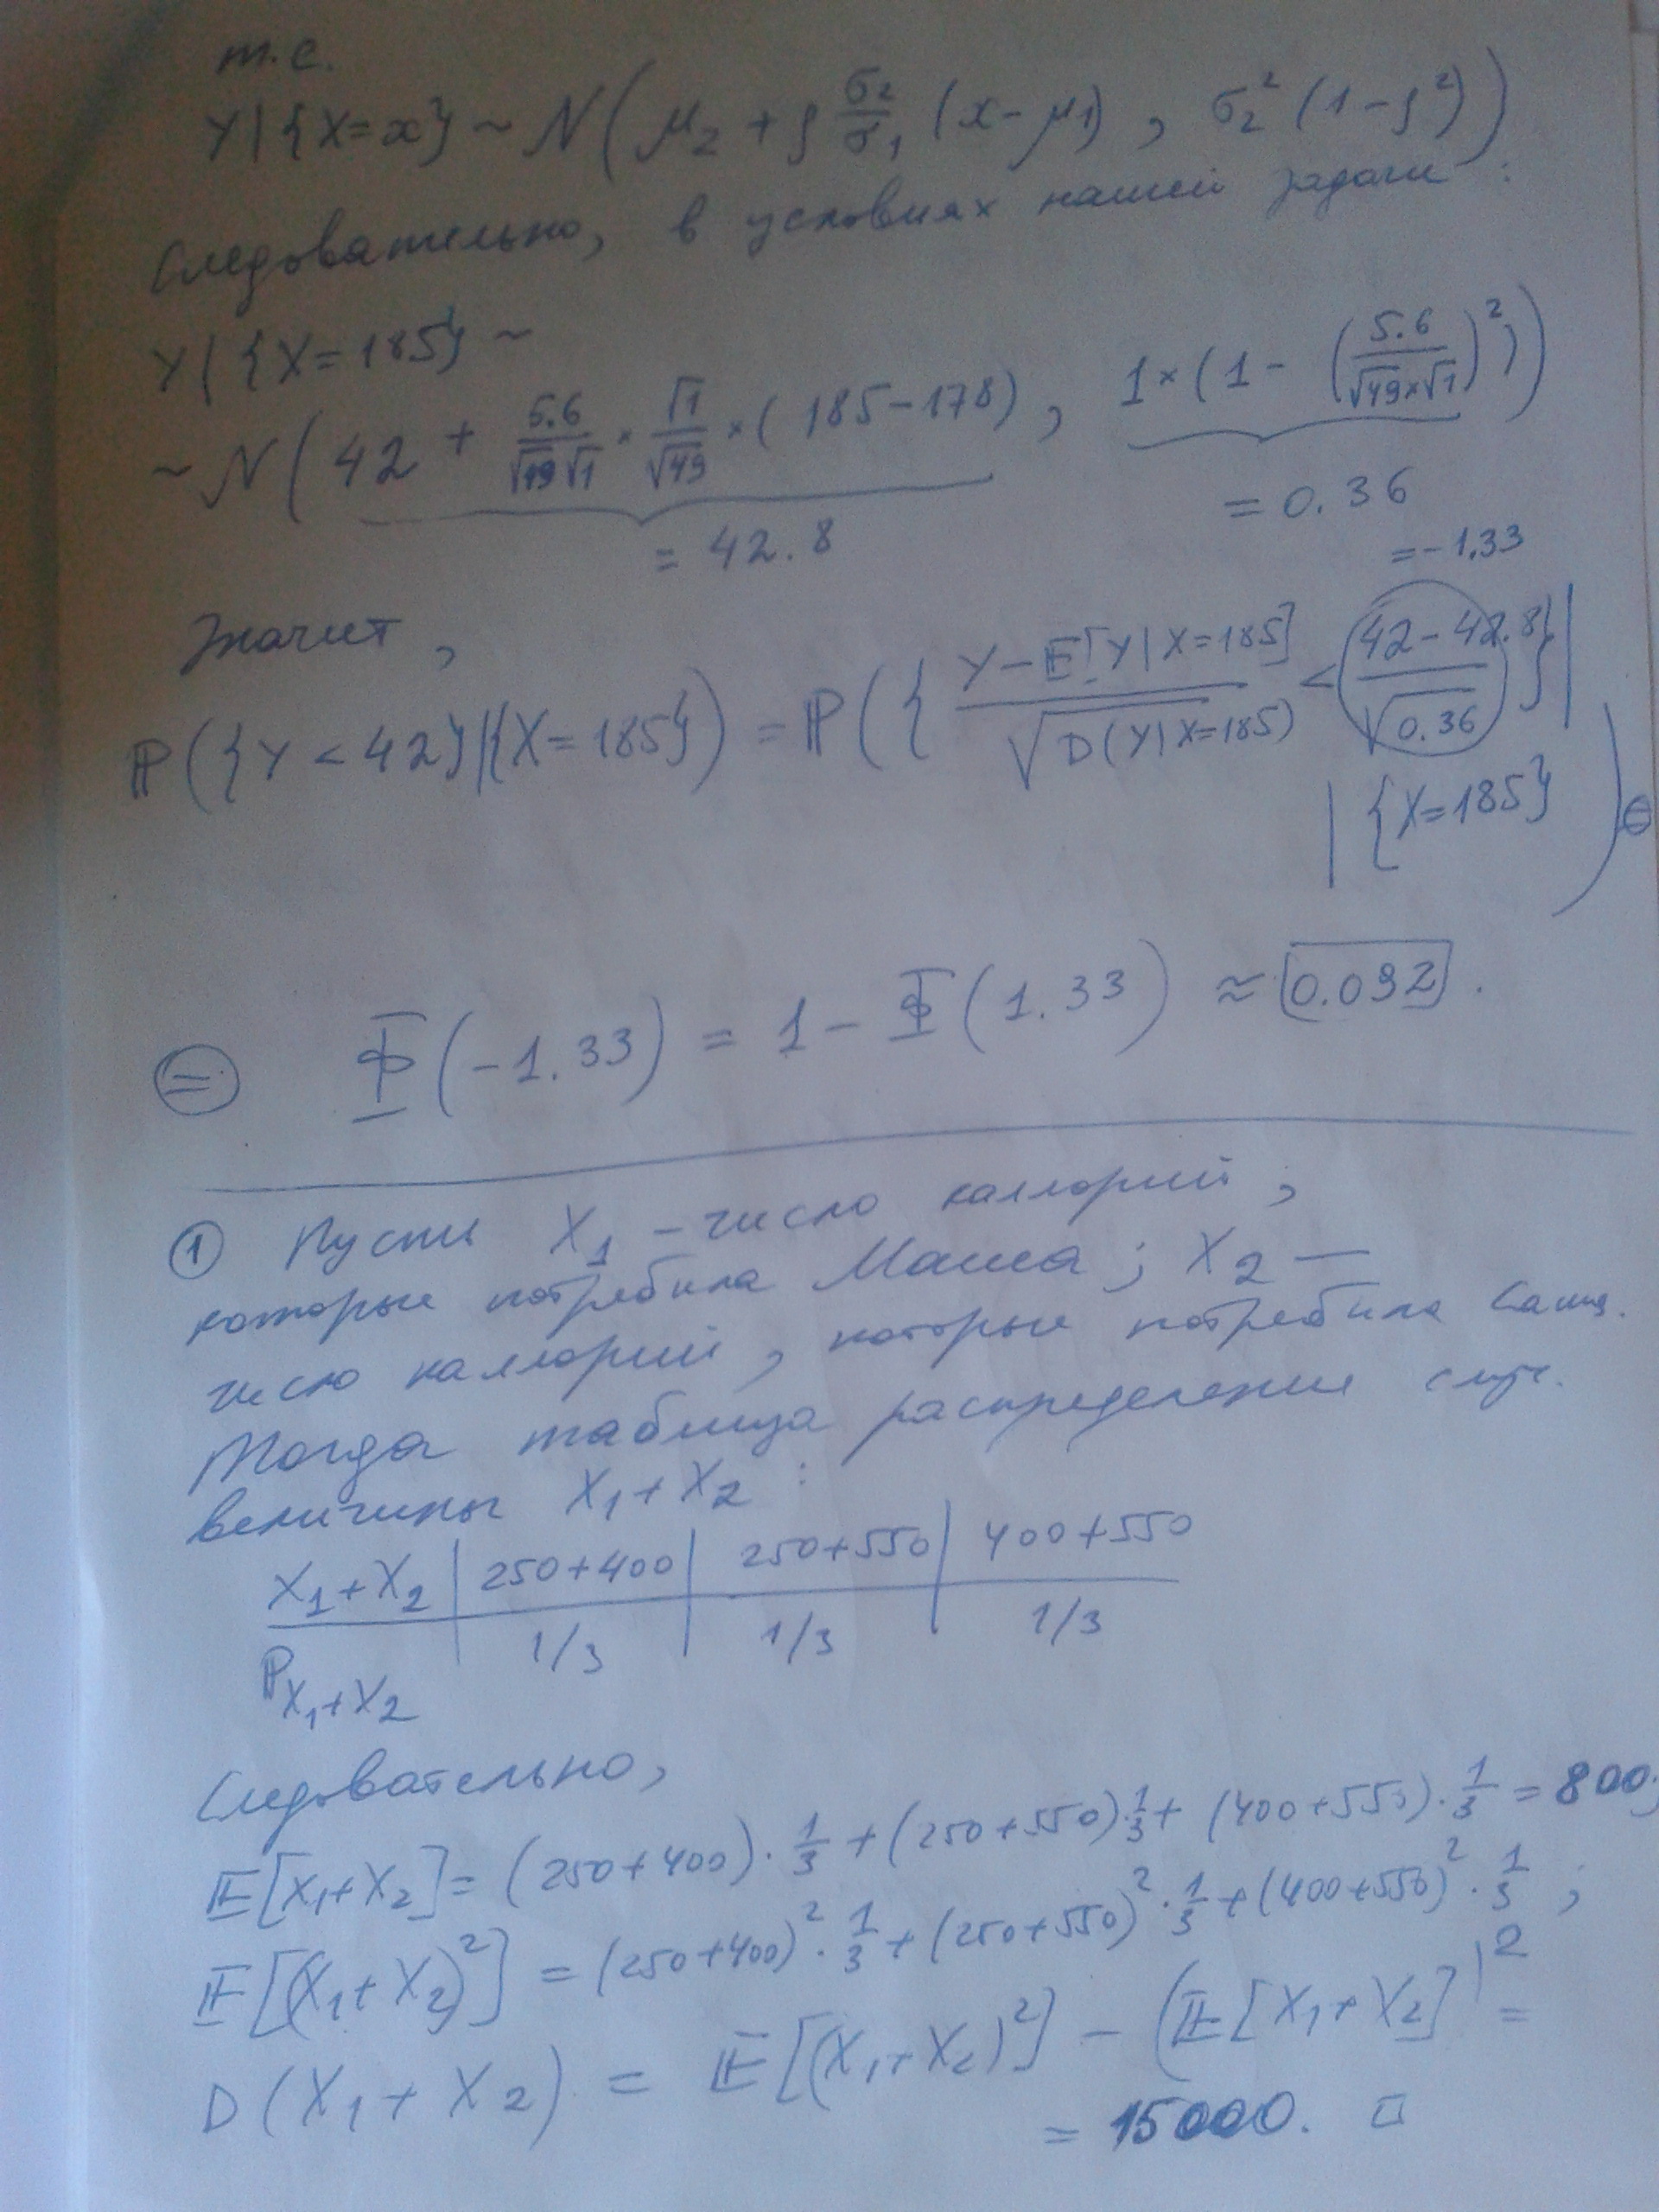 т.е.
Y|{X=x} ~ N(μ₂ + ρ σ₂/σ₁ (x-μ₁), σ₂²(1-ρ²))
Следовательно, в условиях нашей задачи:
Y|{X=185} ~
~ N(42 + 5.6/(√49 √1) × √1/√49 × (185-178), 1×(1-(5.6/(√49×√1))²))
= 42.8
= 0.36
=-1.33
Значит,
ℙ({Y<42}|{X=185}) = ℙ({(Y-𝔼[Y|X=185])/√D(Y|X=185) < (42-42.8)/√0.36}|
|{X=185}) ⊜
⊜ Φ(-1.33) = 1-Φ(1.33) ≈ 0.092.
① Пусть X₁ - число каллорий,
которые потребила Маша; X₂ —
число каллорий, которые потребила Саша.
Тогда таблица распределения случ.
величины X₁+X₂:
X₁+X₂ | 250+400 | 250+550 | 400+550
ℙ_{X₁+X₂} | 1/3 | 1/3 | 1/3
Следовательно,
𝔼[X₁+X₂] = (250+400)·1/3 + (250+550)·1/3 + (400+550)·1/3 = 800;
𝔼[(X₁+X₂)²] = (250+400)²·1/3 + (250+550)²·1/3 + (400+550)²·1/3;
D(X₁+X₂) = 𝔼[(X₁+X₂)²] - (𝔼[X₁+X₂])² =
= 15000. □